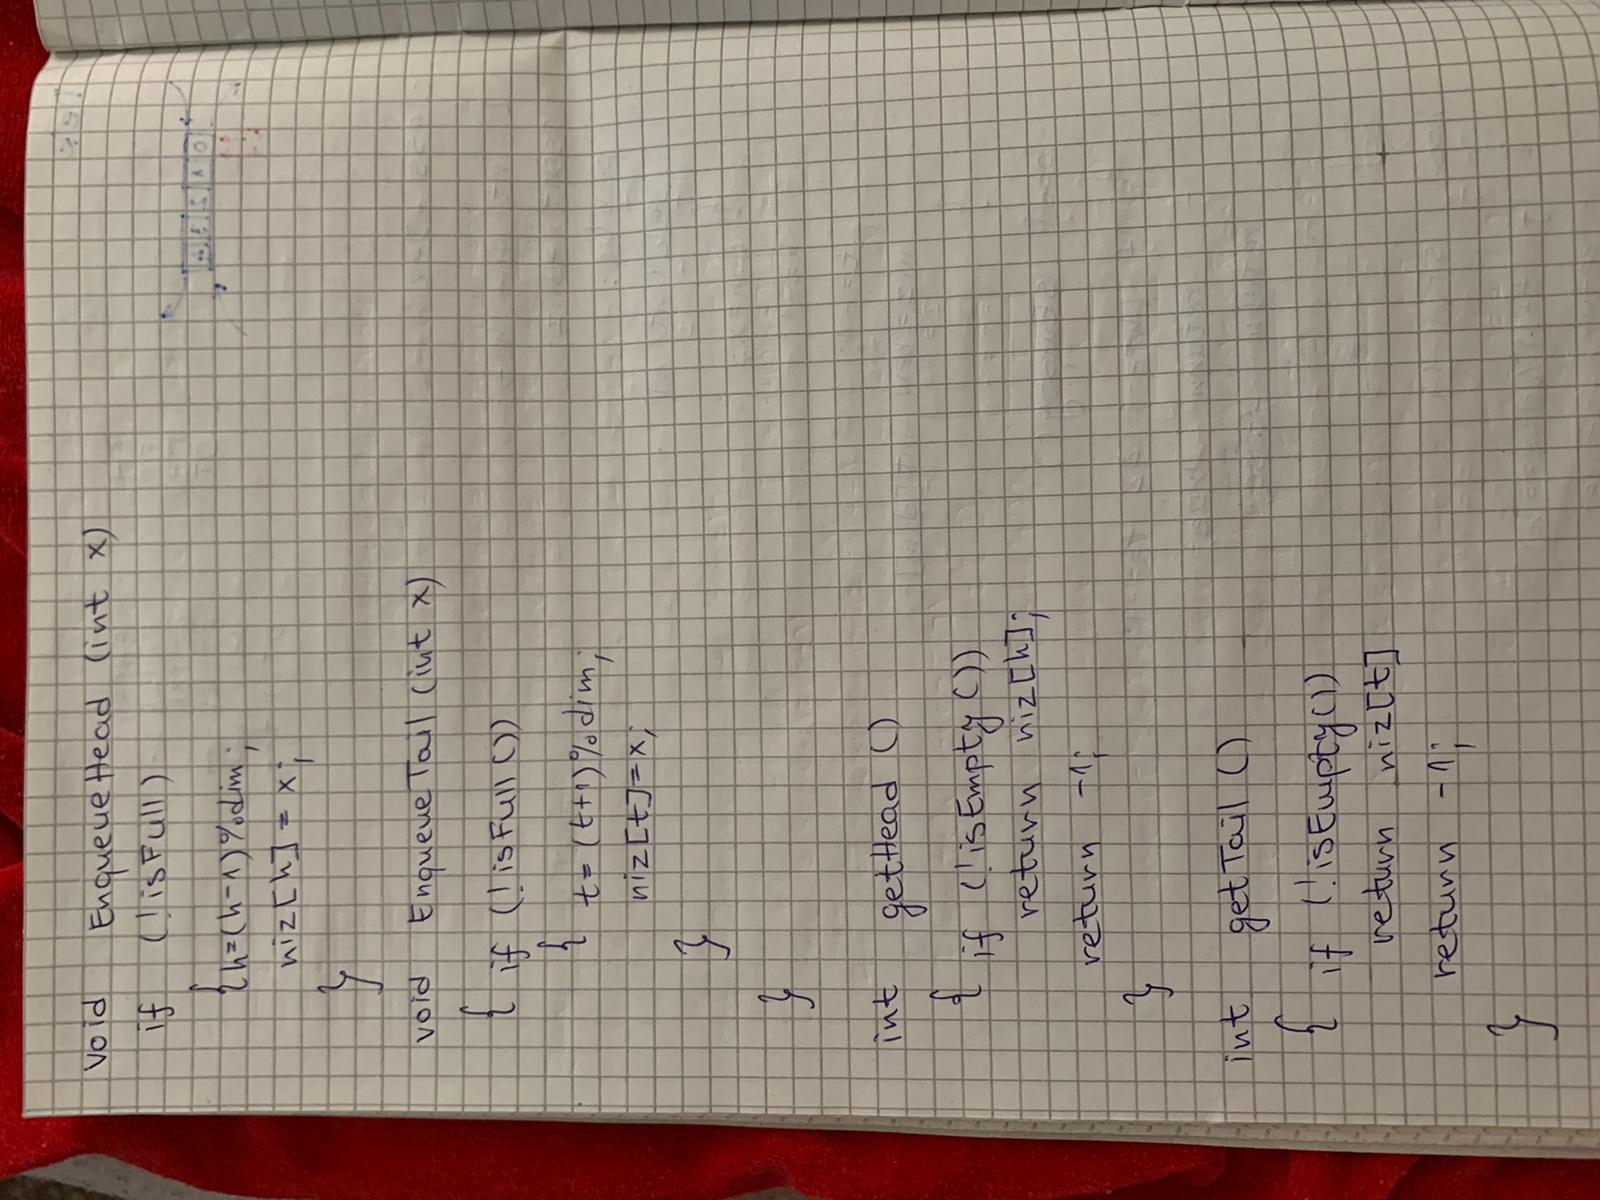 void EnqueueHead (int x)
if (!isFull)
{h=(h-1)%dim;
niz[h]=x;
}
void EnqueueTail (int x)
{ if (!isFull())
{
t=(t+1)%dim;
niz[t]=x;
}
}
int getHead ()
{ if (!isEmpty())
return niz[h];
return -1;
}
int getTail ()
{ if (!isEmpty())
return niz[t]
return -1;
}